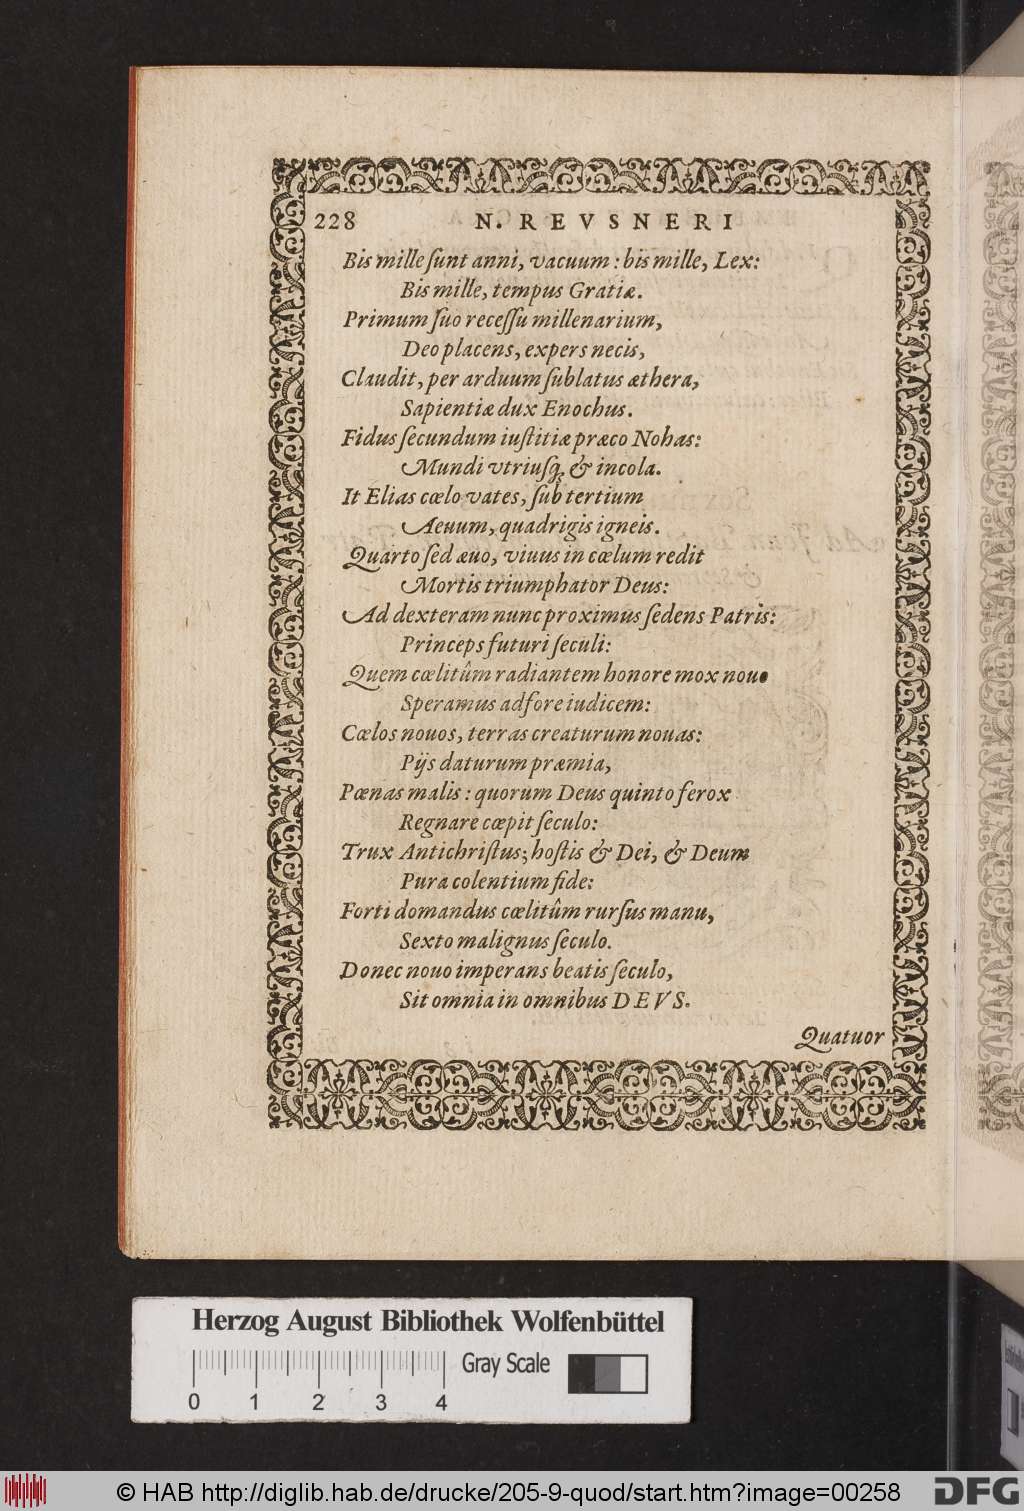 228 N. REVSNERI
Bis mille ſunt anni, vacuum : bis mille, Lex:
Bis mille, tempus Gratiæ.
Primum ſuo receſſu millenarium,
Deo placens, expers necis,
Claudit, per arduum ſublatus æthera,
Sapientiæ dux Enochus.
Fidus ſecundum iuſtitiæ præco Nohas:
Mundi vtriuſq; & incola.
It Elias cœlo vates, ſub tertium
Aeuum, quadrigis igneis.
Quarto ſed æuo, viuus in cœlum redit
Mortis triumphator Deus:
Ad dexteram nunc proximus ſedens Patris:
Princeps futuri ſeculi:
Quem cœlitûm radiantem honore mox nouo
Speramus adfore iudicem:
Cœlos nouos, terras creaturum nouas:
Pijs daturum præmia,
Pœnas malis : quorum Deus quinto ferox
Regnare cœpit ſeculo:
Trux Antichriſtus; hoſtis & Dei, & Deum
Pura colentium fide:
Forti domandus cœlitûm rurſus manu,
Sexto malignus ſeculo.
Donec nouo imperans beatis ſeculo,
Sit omnia in omnibus DEVS.
Quatuor
Herzog August Bibliothek Wolfenbüttel
Gray Scale
0 1 2 3 4
© HAB http://diglib.hab.de/drucke/205-9-quod/start.htm?image=00258
DFG